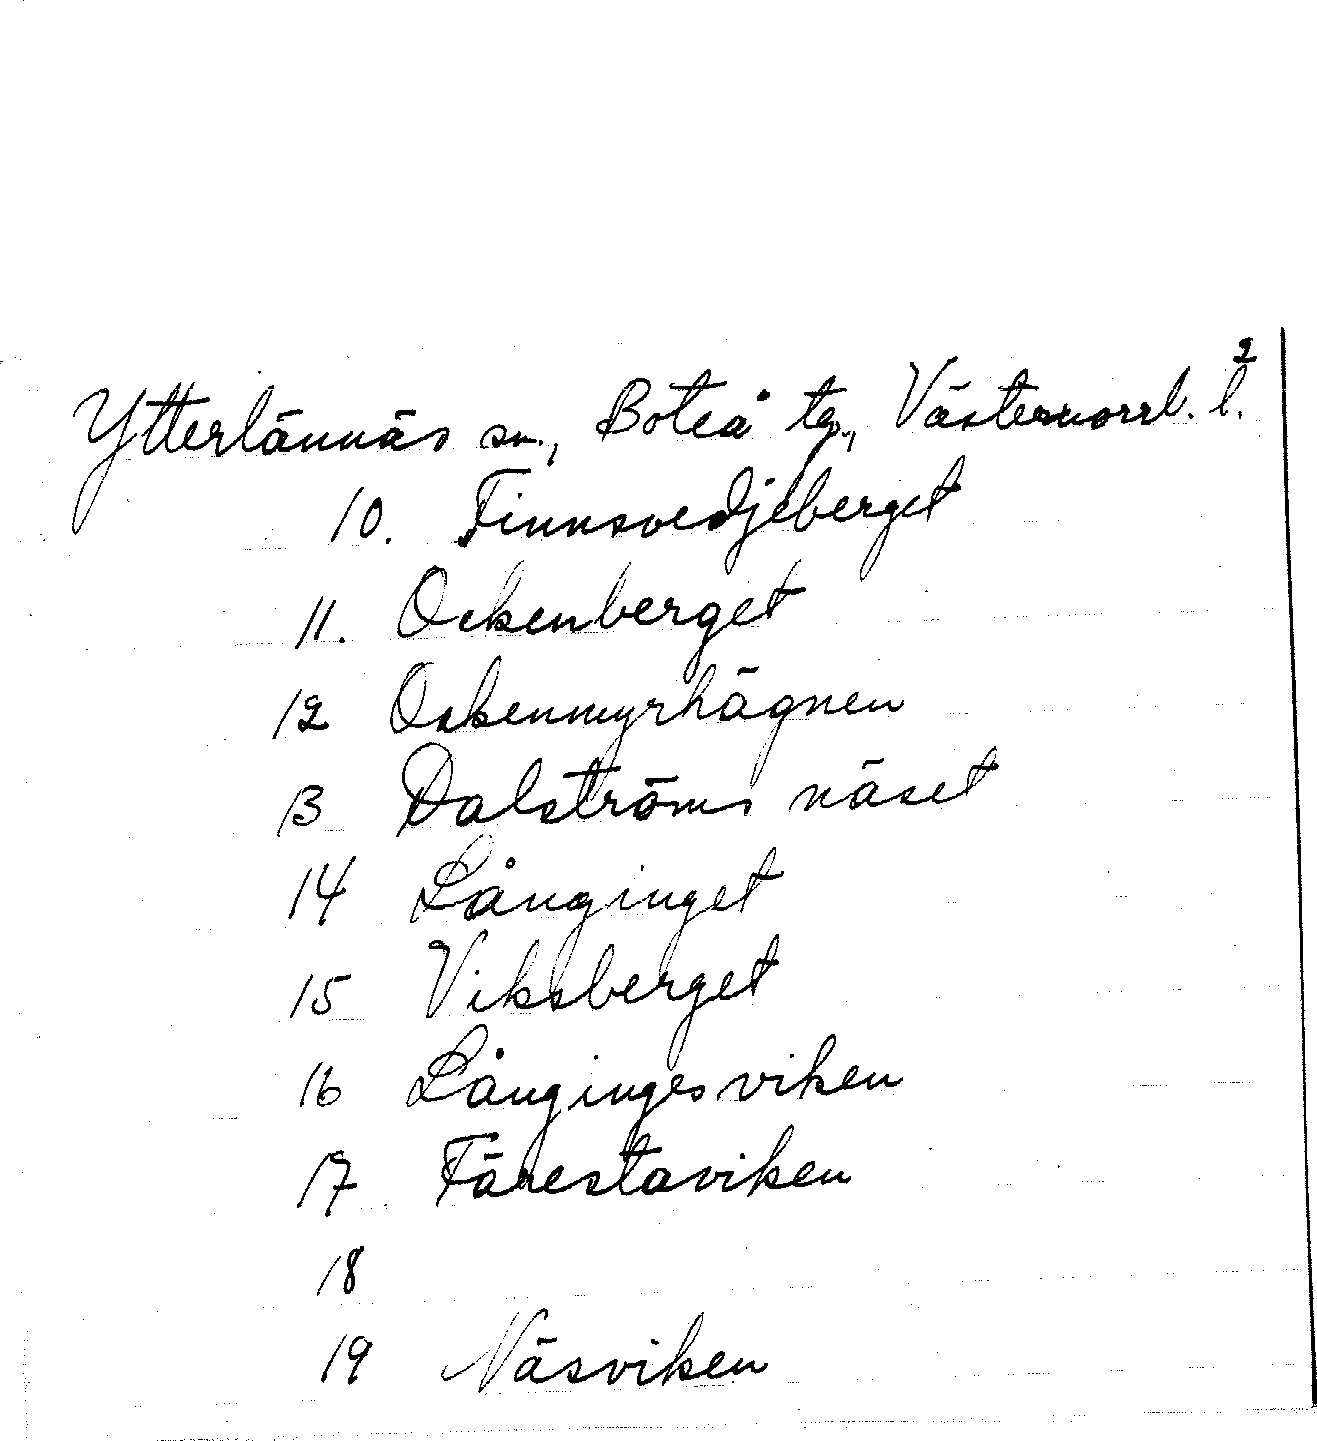 2
Ytterlännäs sn., Boteå tg., Västernorrl. l.
10. Finnsvedjeberget
11. Ockenberget
12 Ockenmyrhägnen
13 Dalströms näset
14 Långinget
15 Viksberget
16 Långingesviken
17 Färestaviken
18
19 Näsviken